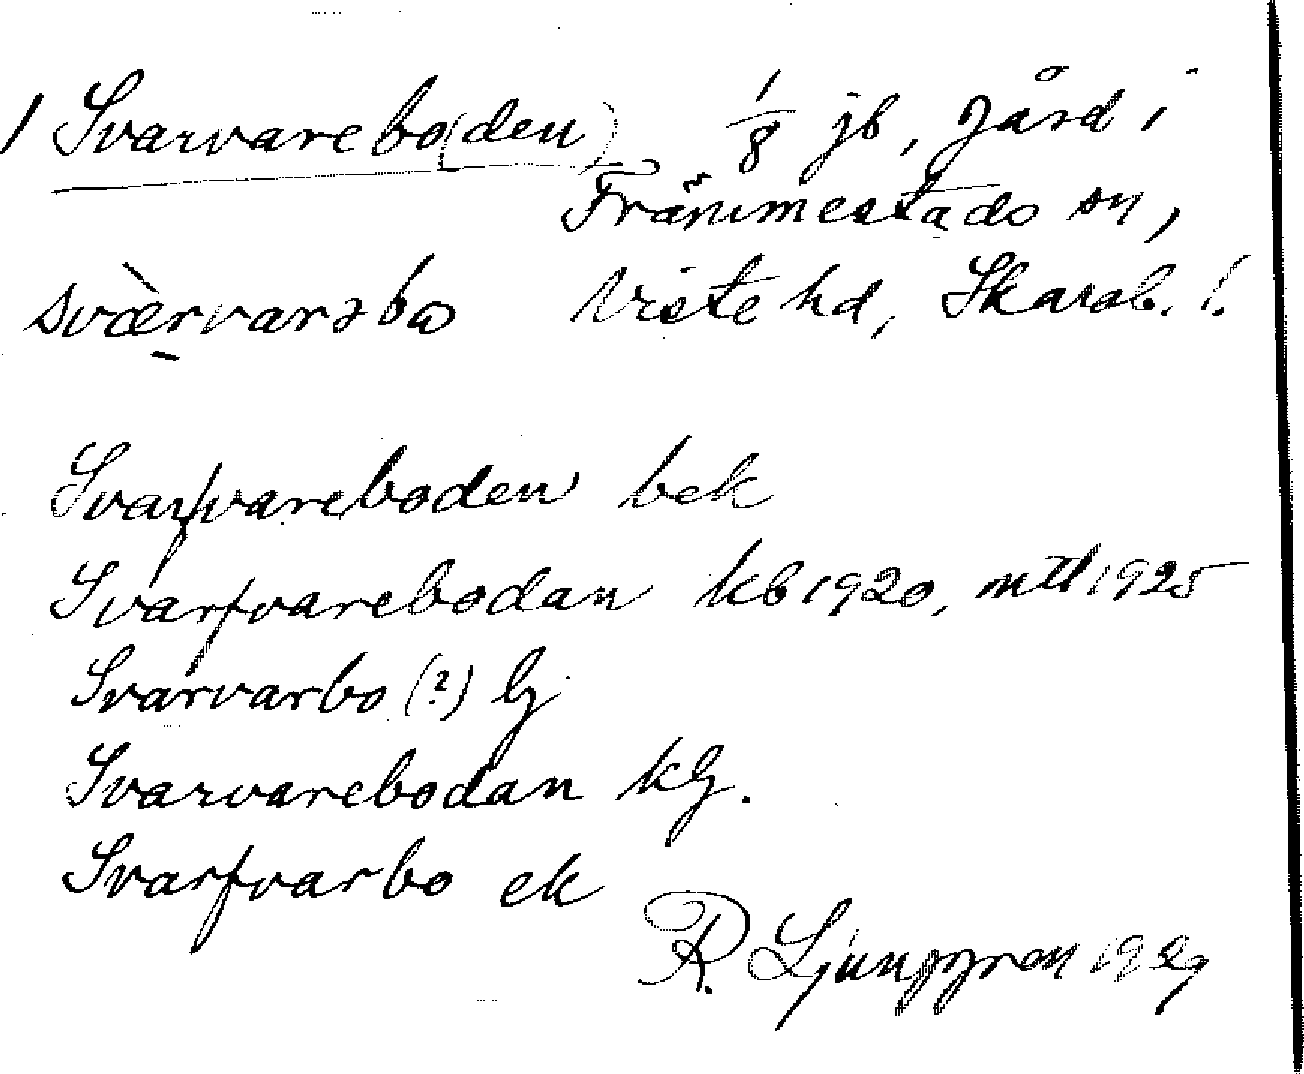 1 Svarvarebo(den) 1/8 jb, gård i
Främmestads sn,
svèrvarəbω Viste hd, Skarab. l.
Svarfvareboden bek
Svarfvarebodan kb 1920, mtl 1925
Svarvarbo (?) Lj
Svarvarebodan kLj.
Svarfvarbo ek
R. Ljunggren 1929